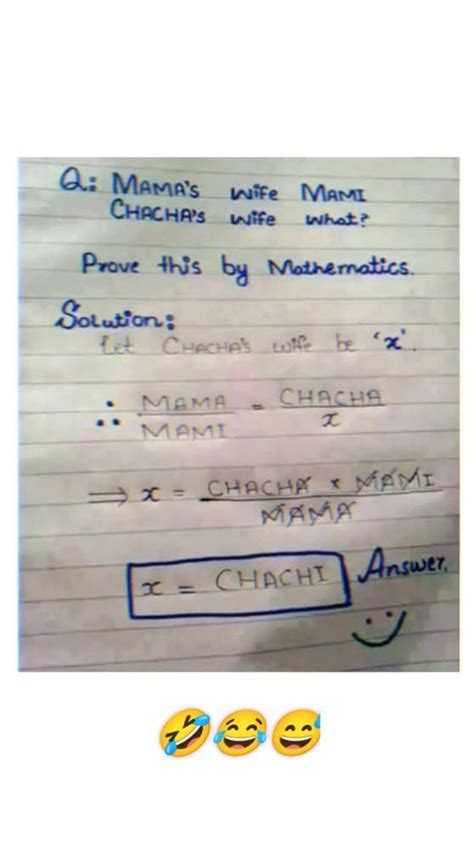 Q: MAMA'S wife MAMI
CHACHA'S wife what?
Prove this by Mathematics.
Solution:
Let CHACHA'S wife be 'x'.
∴ MAMA/MAMI = CHACHA/x
⇒ x = CHACHA × MAMI/MAMA
x = CHACHI Answer.